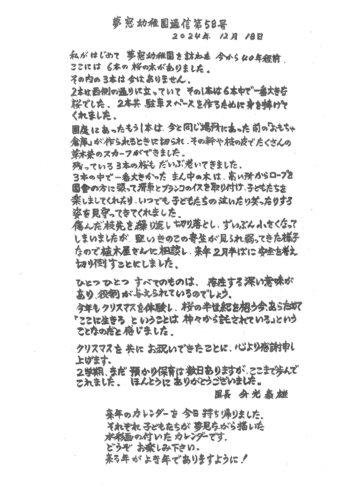 夢窓幼稚園通信第58号
2024年 12月 18日
私がはじめて 夢窓幼稚園を訪ねた 今から40年程前
ここには 6本の 桜の木がありました。
その内の3本は今はありません。
2本は西側の通りに立っていて その1本は6本中で一番大きな
桜でした。2本共 駐車スペースを作るために身を捧げて
くれました。
園庭にあったもう1本は、今と同じ場所にあった前の「おもちゃ
倉庫」が作られるときに切られ、その幹や枝の皮でたくさんの
草木染のスカーフができました。
残っている3本の桜も だいぶ老いてきました。
3本の中で一番大きかった まん中の木は、高い所からロープを
園舎の方に張って滑車とブランコのイスを取り付け、子どもたちを
楽しませてくれたり、いつでも 子どもたちの泣いたり笑ったりする
姿を見守ってきてくれました。
傷んだ枝先を繰り返し切り落とし、ずいぶん小さくなって
しまいましたが、堅いきのこの寄生が見られ弱ってきた様子
なので植木屋さんに相談し、来年2月半ばに安全を考え
切り倒すことにしました。
ひとつ ひとつ すべてのものは、存在する深い意味が
あり、役割が与えられているのでしょう。
今年もクリスマスを体験し、桜の半世紀を想う今、あらためて
「ここに生きる ということは 神々から託されている」という
ことなのだと感じました。
クリスマスを共に お祝いできたことに、心より感謝申し
上げます。
2学期、まだ 預かり保育は数日ありますが、ここまで歩んで
これました。ほんとうに ありがとうございました。
園長
来年のカレンダーを 今日 持ち帰りました。
それぞれ 子どもたちが 夢見ながら描いた
水彩画の付いた カレンダーです。
どうぞ お楽しみ下さい。
来る年が よき年でありますように!